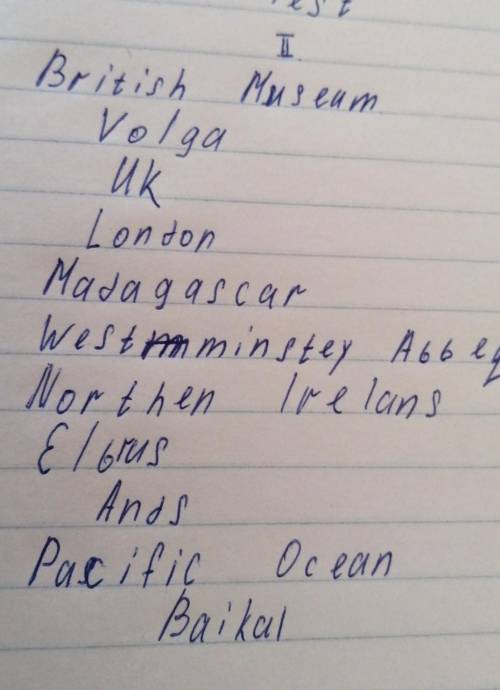 II
British Museam
Volga
UK
London
Madagascar
Westminstey Abbey
Northen Irelans
Elbrus
Ands
Pacific Ocean
Baikal